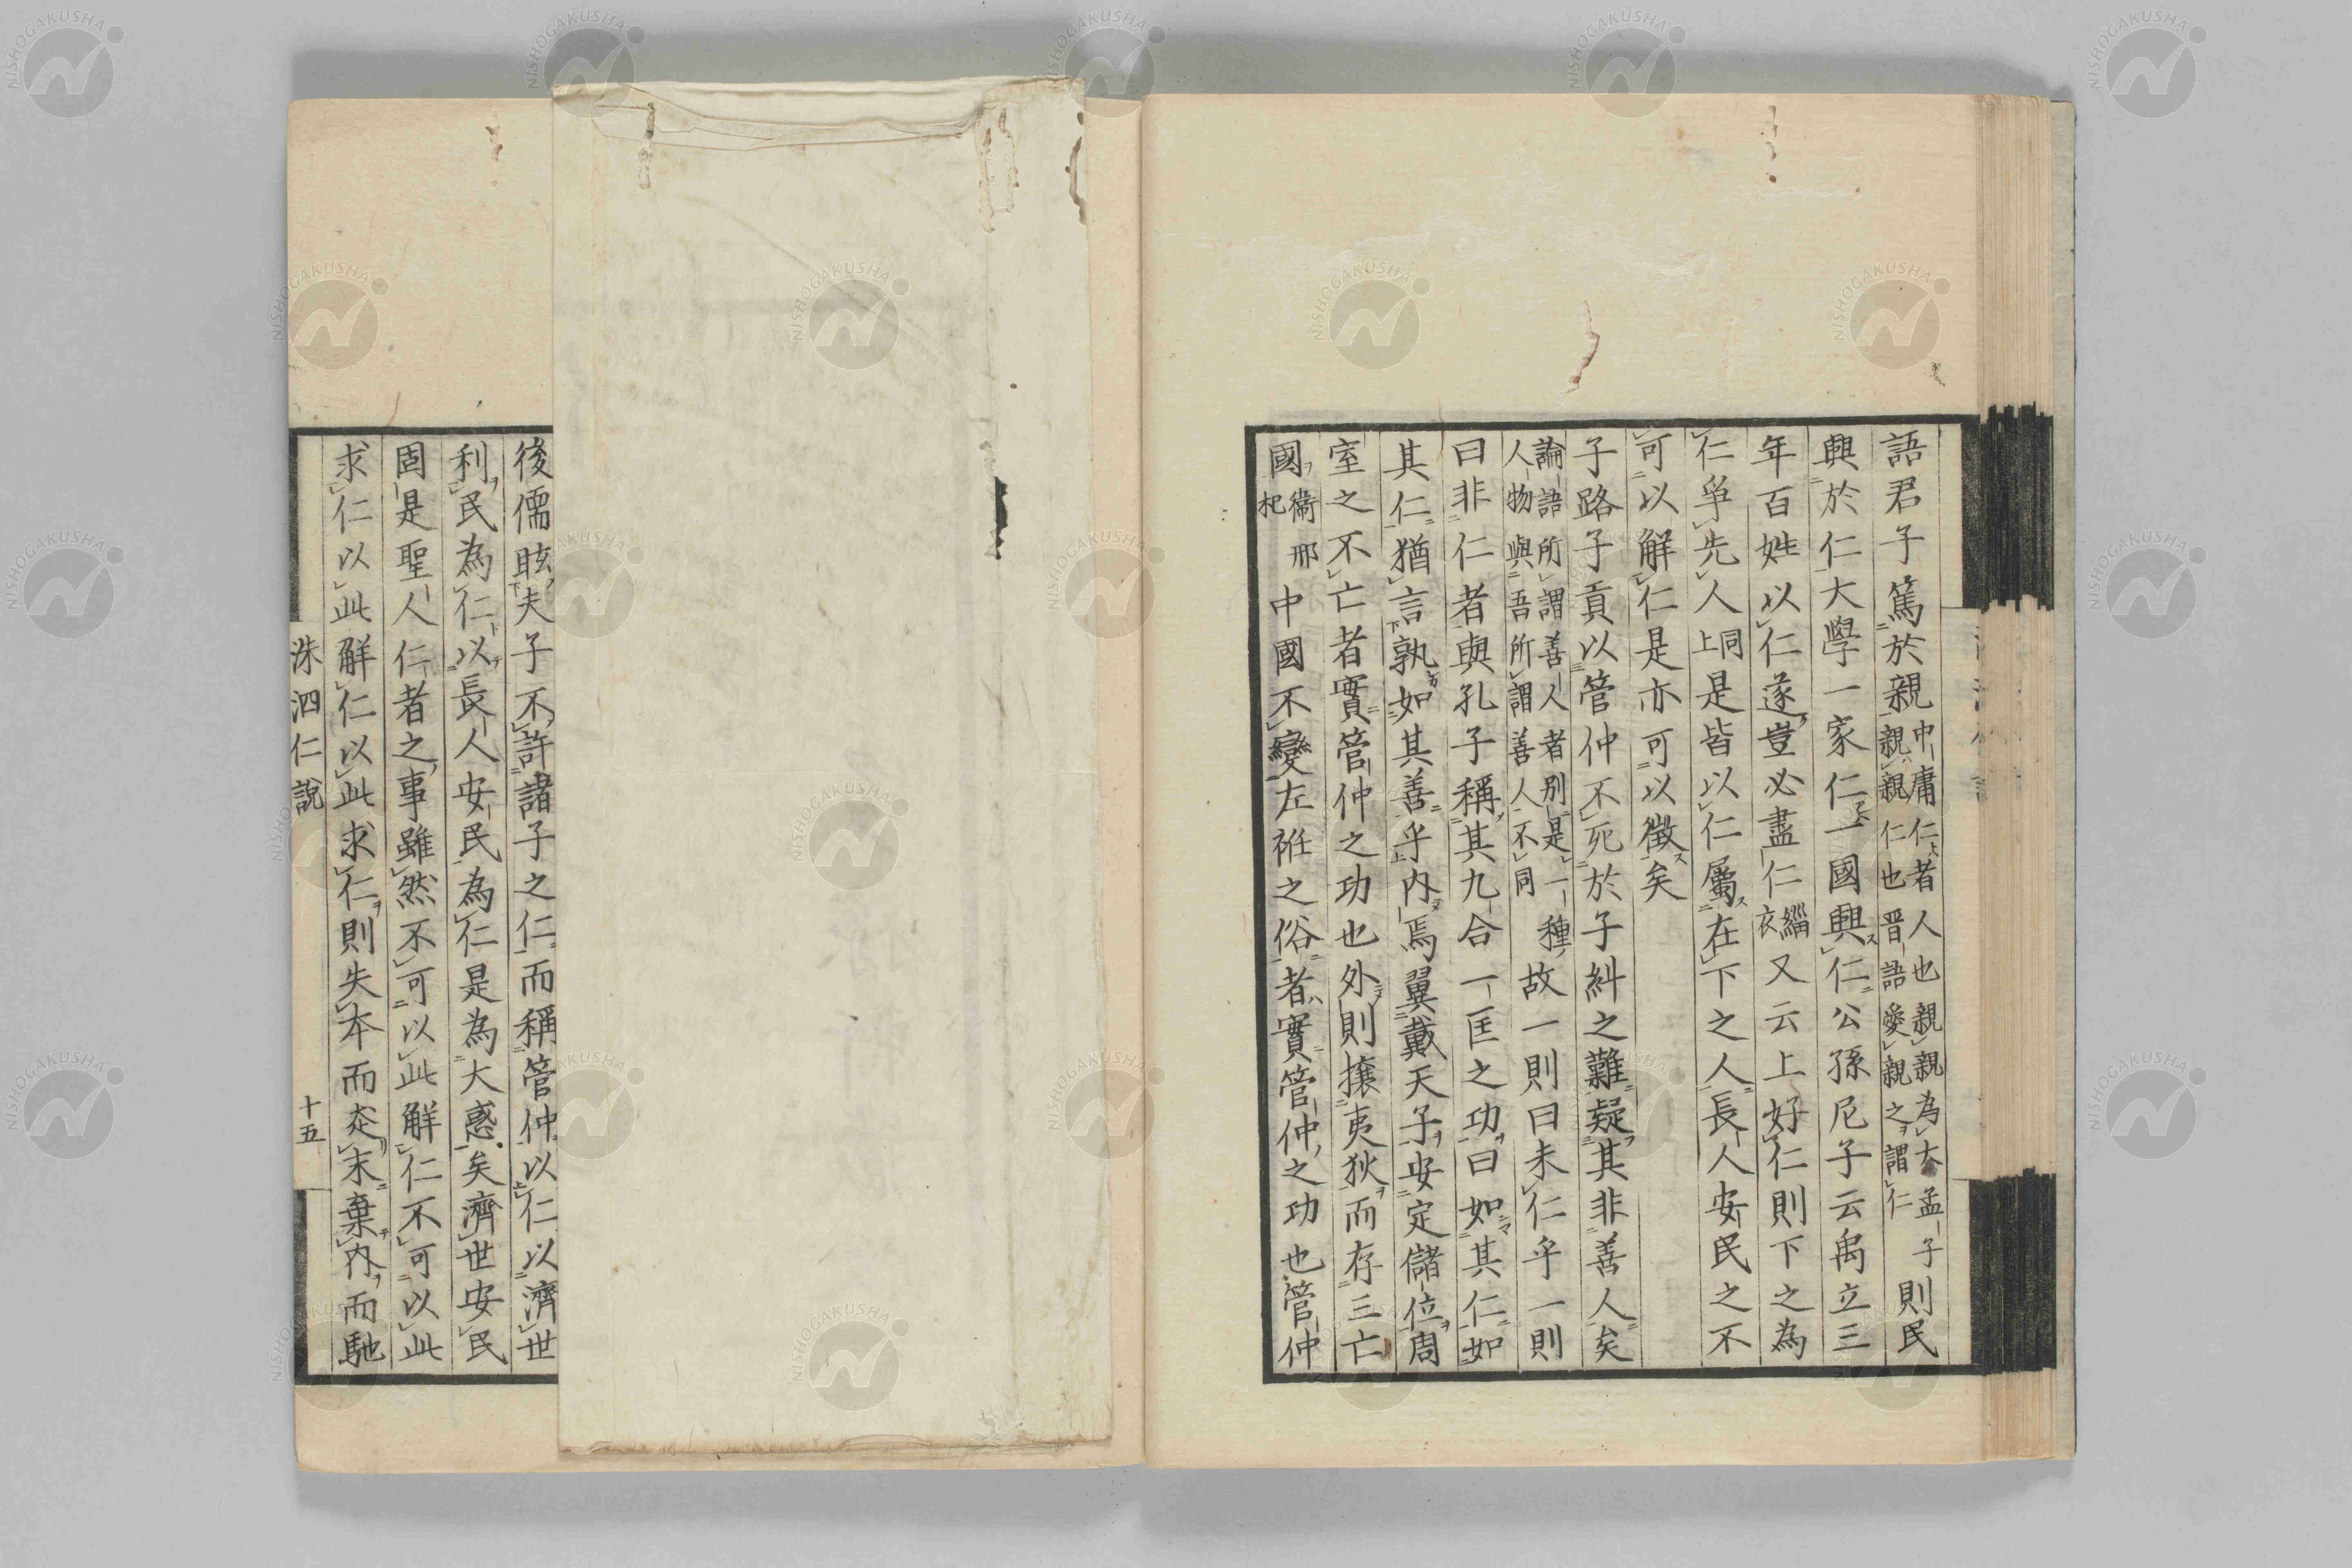 語君子篤於親中庸仁者人也親親為大孟子親親仁也晋語愛親之謂仁則民
興於仁大學一家仁一國興仁公孫尼子云禹立三
年百姓以仁遂豈必盡仁緇衣又云上好仁則下之為
仁争先人同上是皆以仁屬在下之人長人安民之不
可以解仁是亦可以徴矣
子路子貢以管仲不死於子糾之難疑其非善人矣
論語所謂善人者別是一種人物與吾所謂善人不同故一則曰未仁乎一則
曰非仁者與孔子稱其九合一匡之功曰如其仁如
其仁猶言孰如其善乎內焉翼戴天子安定儲位周
室之不亡者實管仲之功也外則攘夷狄而存三亡
國衞邢杞中國不變左袵之俗者實管仲之功也管仲
後儒眩夫子不許諸子之仁而稱管仲以仁以濟世
利民為仁以長人安民為仁是為大惑矣濟世安民
固是聖人仁者之事雖然不可以此解仁不可以此
求仁以此解仁以此求仁則失本而从末棄內而馳
洙泗仁說
十五
NISHOGAKUSHA